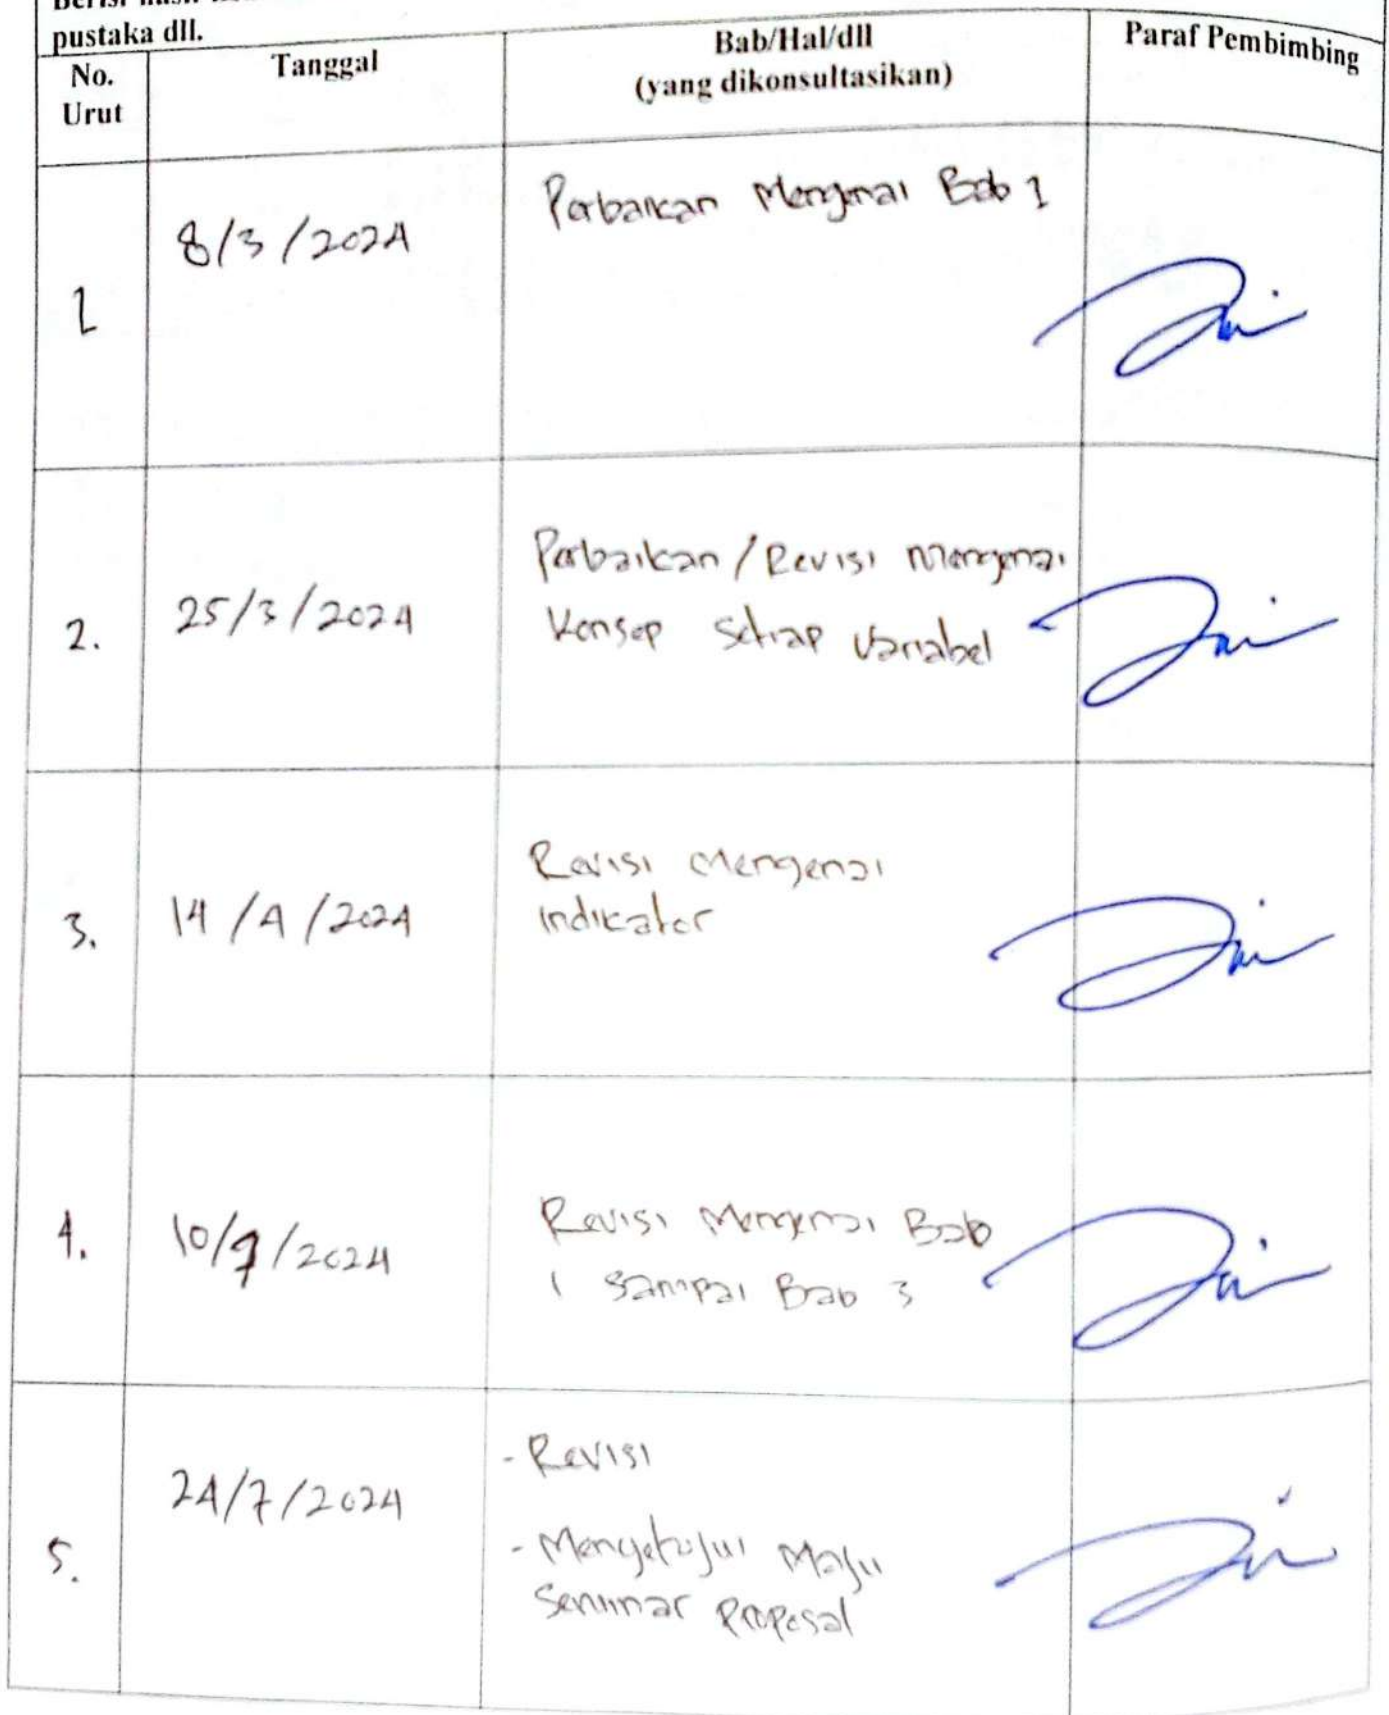 pustaka dll.
No.
Urut
Tanggal
Bab/Hal/dll
(yang dikonsultasikan)
Paraf Pembimbing
1
8/3/2024
Perbaikan Mengenai Bab 1
2.
25/3/2024
Perbaikan/Revisi Mengenai
Konsep Setiap Variabel
3.
14/4/2024
Revisi Mengenai
indikator
4.
10/7/2024
Revisi Mengenai Bab
1 Sampai Bab 3
5.
24/7/2024
- Revisi
- Mengetujui Maju
Seminar Proposal